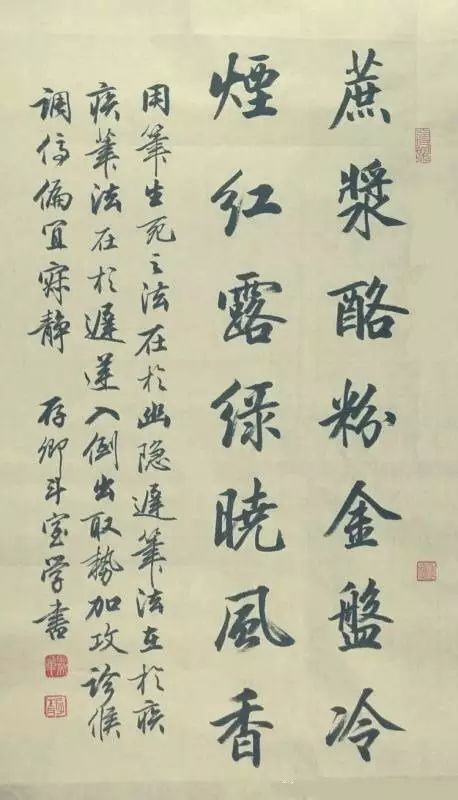 蔗漿酪粉金盤冷
煙红露绿曉風香
用筆生死之法在於幽隐遲筆法在於疾
疾筆法在於遲逆入倒出取勢加攻診候
调停偏宜寂静 存卿斗室学書